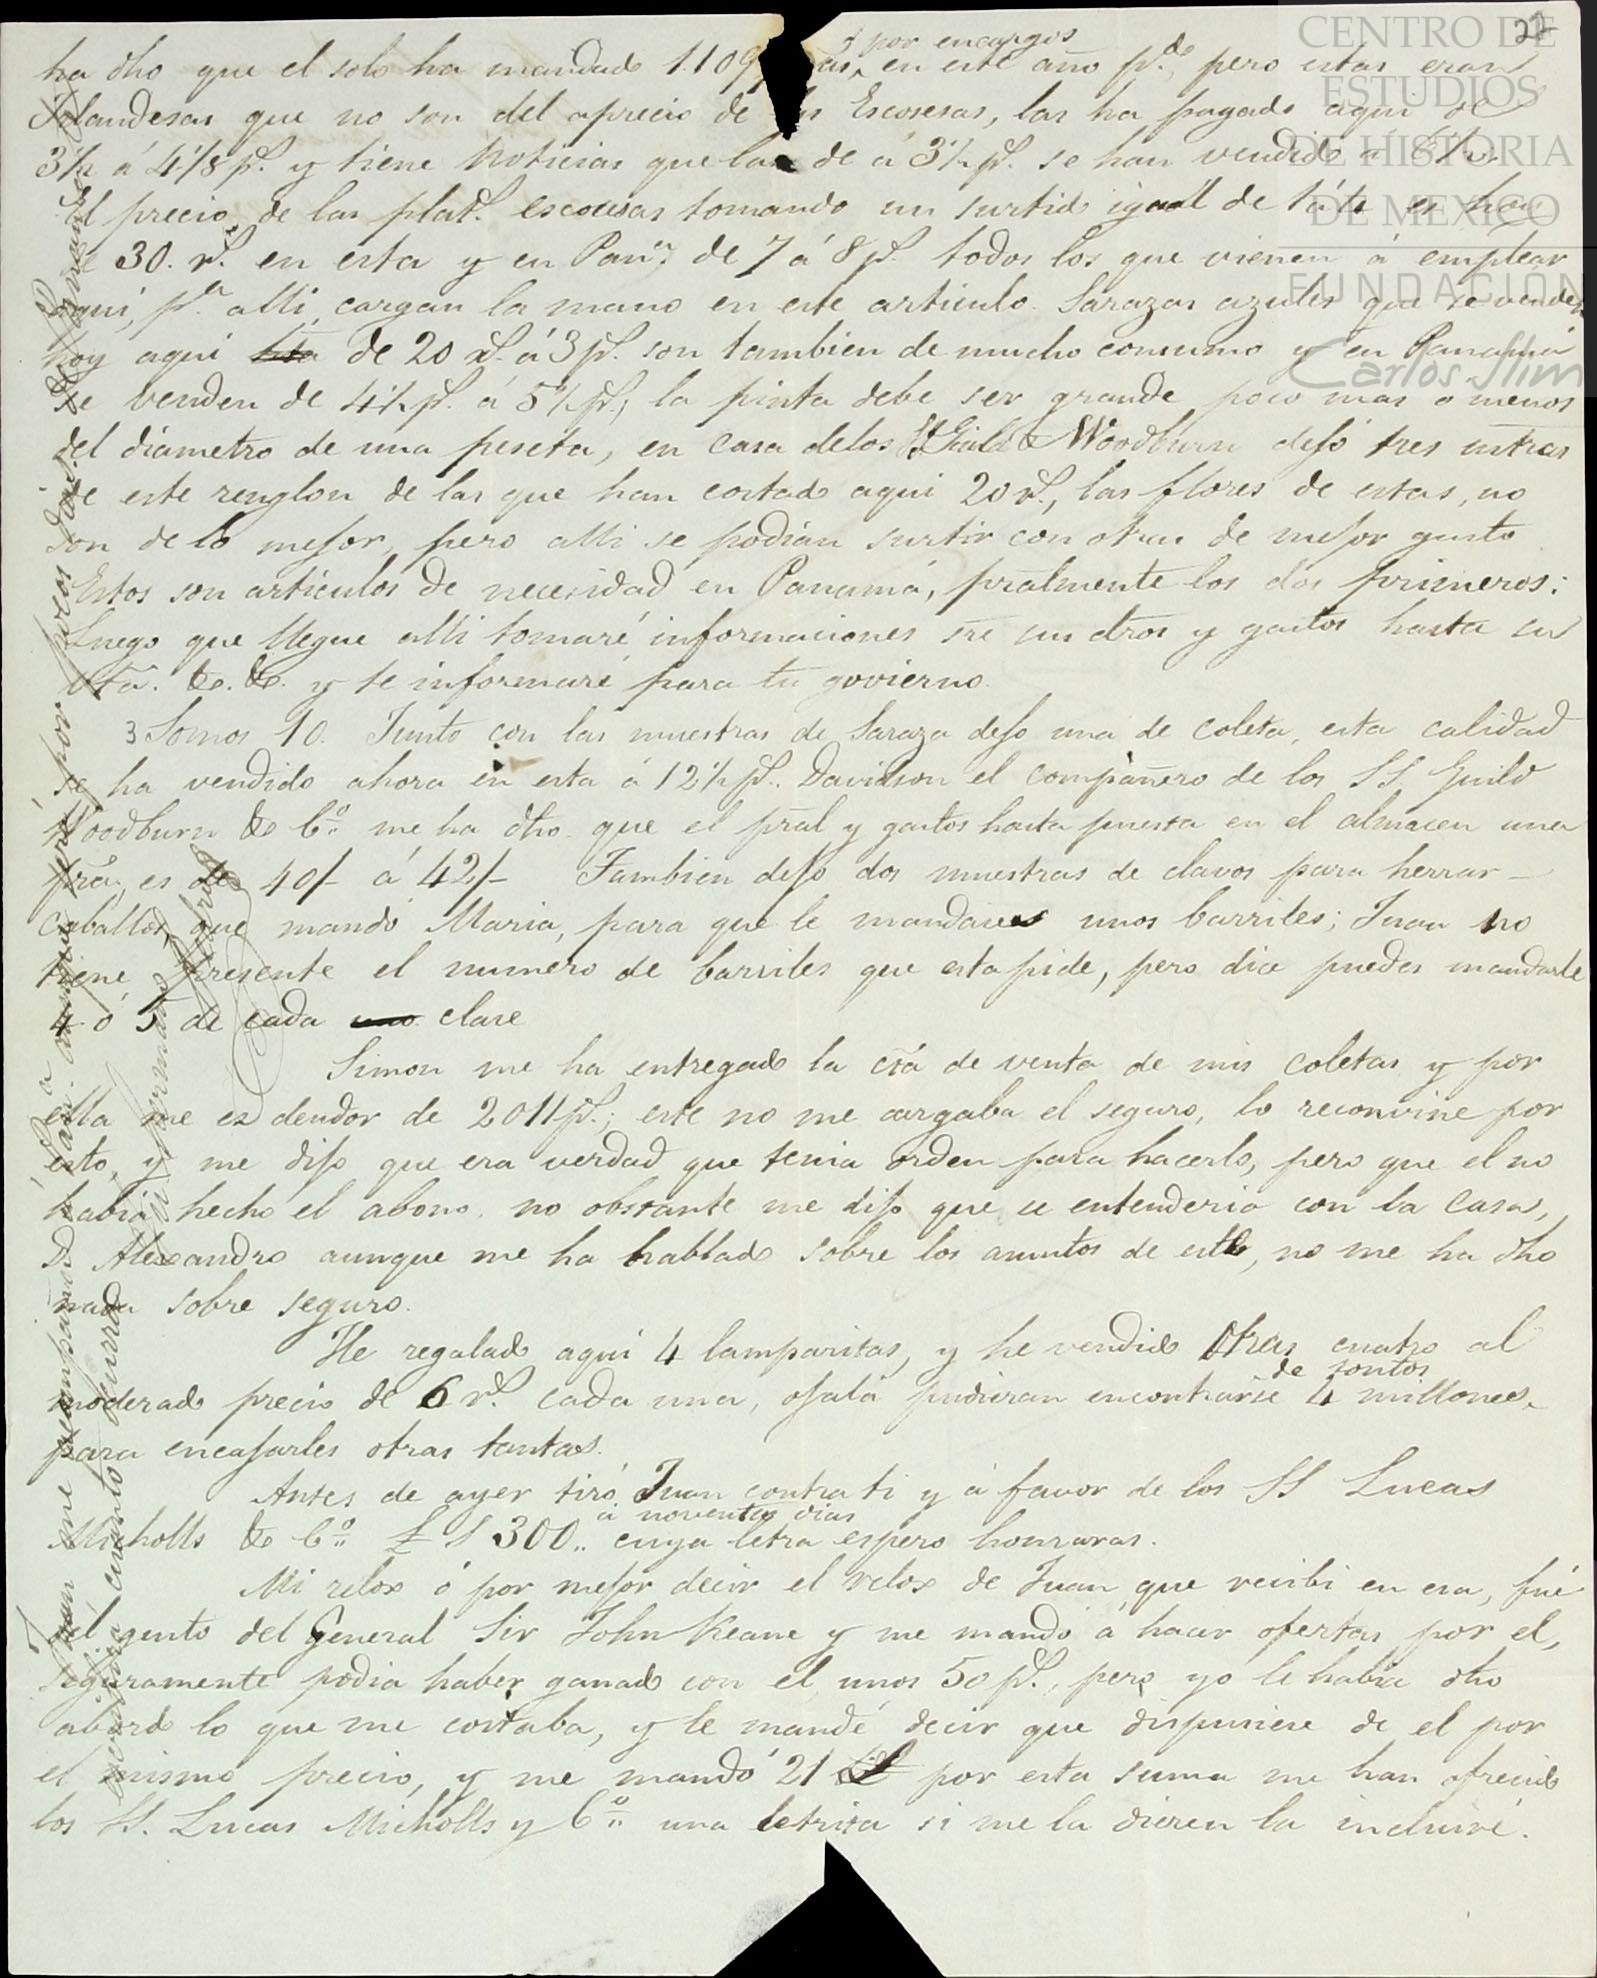 22
CENTRO DE
ESTUDIOS
DE HISTORIA
DE MEXICO
FUNDACIÓN
Carlos Slim
por encargos
ha dho que el solo ha mandado 1.109 en este año p.do, pero estas eran
Irlandesas que no son del aprecio de las Escosesas, las ha pagado aqui de
3½ á 4⅛ p.s y tiene noticias que las de á 3½ p.s se han vendido
El precio de las plat.s escocesas tomando un surtido igual de es hoy
30. r.s en esta y en Pan.á de 7 á 8 p.s todos los que vienen á emplear
aqui, p.a alli cargan la mano en este articulo. Sarazas azules que se venden
hoy aqui de 20 r.s á 3 p.s son tambien de mucho consumo y en Panamá
se venden de 4½ p.s á 5½ p.s; la pinta debe ser grande poco mas o menos
del diametro de una peseta, en casa de los SS Guild & Woodburn dejó tres mtras
de este renglon de las que han costado aqui 20 r.s, las flores de estas, no
son de lo mejor, pero alli se podian surtir con otras de mejor gusto
Estos son articulos de necesidad en Panamá, pralmente los dos primeros:
Luego que llegue alli tomaré informaciones sre sus dros y gastos hasta su
vta. &c. &c. y te informaré para tu govierno.
3 Somos 10. Junto con las muestras de Saraza dejo una de coleta, esta calidad
se ha vendido ahora en esta á 12½ p.s. Davidson el compañero de los SS Guild
Woodburn & Co. me ha dho que el pral y gastos hasta puesta en el almacen una
pza, es de 40/- á 42/- Tambien dejo dos muestras de clavos para herrar
caballos, que mandó Maria, para que le mandases unos barriles; Juan no
tiene presente el numero de barriles que esta pide, pero dice puedes mandarle
4 ó 5 de cada clase
Simon me ha entregado la cta de venta de mis coletas y por
ella me es deudor de 2011 p.s; este no me cargaba el seguro, lo reconvine por
esto, y me dijo que era verdad que tenia orden para hacerlo, pero que el no
habia hecho el abono, no obstante me dijo que se entenderia con la casa,
D Alexandro aunque me ha hablado sobre los asuntos de este, no me ha dho
nada sobre seguro.
He regalado aqui 4 lamparitas, y he vendido otras cuatro al
de tontos
moderado precio de 6 r.s cada una, ojala pudieran encontrarse 4 millones
para encajarles otras tantas.
Antes de ayer tiró Juan contra ti y á favor de los SS Lucas
á noventa dias
Micholls & Co. £ S 300.. cuya letra espero honraras.
Mi relox ó por mejor decir el relox de Juan, que recibi en esa, fué
del gusto del General Sir John Keane y me mandó á hacer ofertas por el,
seguramente podia haber ganado con el unos 50 p.s, pero yo le habia dho
abordo lo que me costaba, y le mandé decir que dispusiese de el por
el mismo precio, y me mandó 21 £ por esta suma me han ofrecido
los SS. Lucas Micholls y Co. una letrita si me la dieren la incluiré.
Juan me acompañará á Pan.á aunque será por pocos dias.